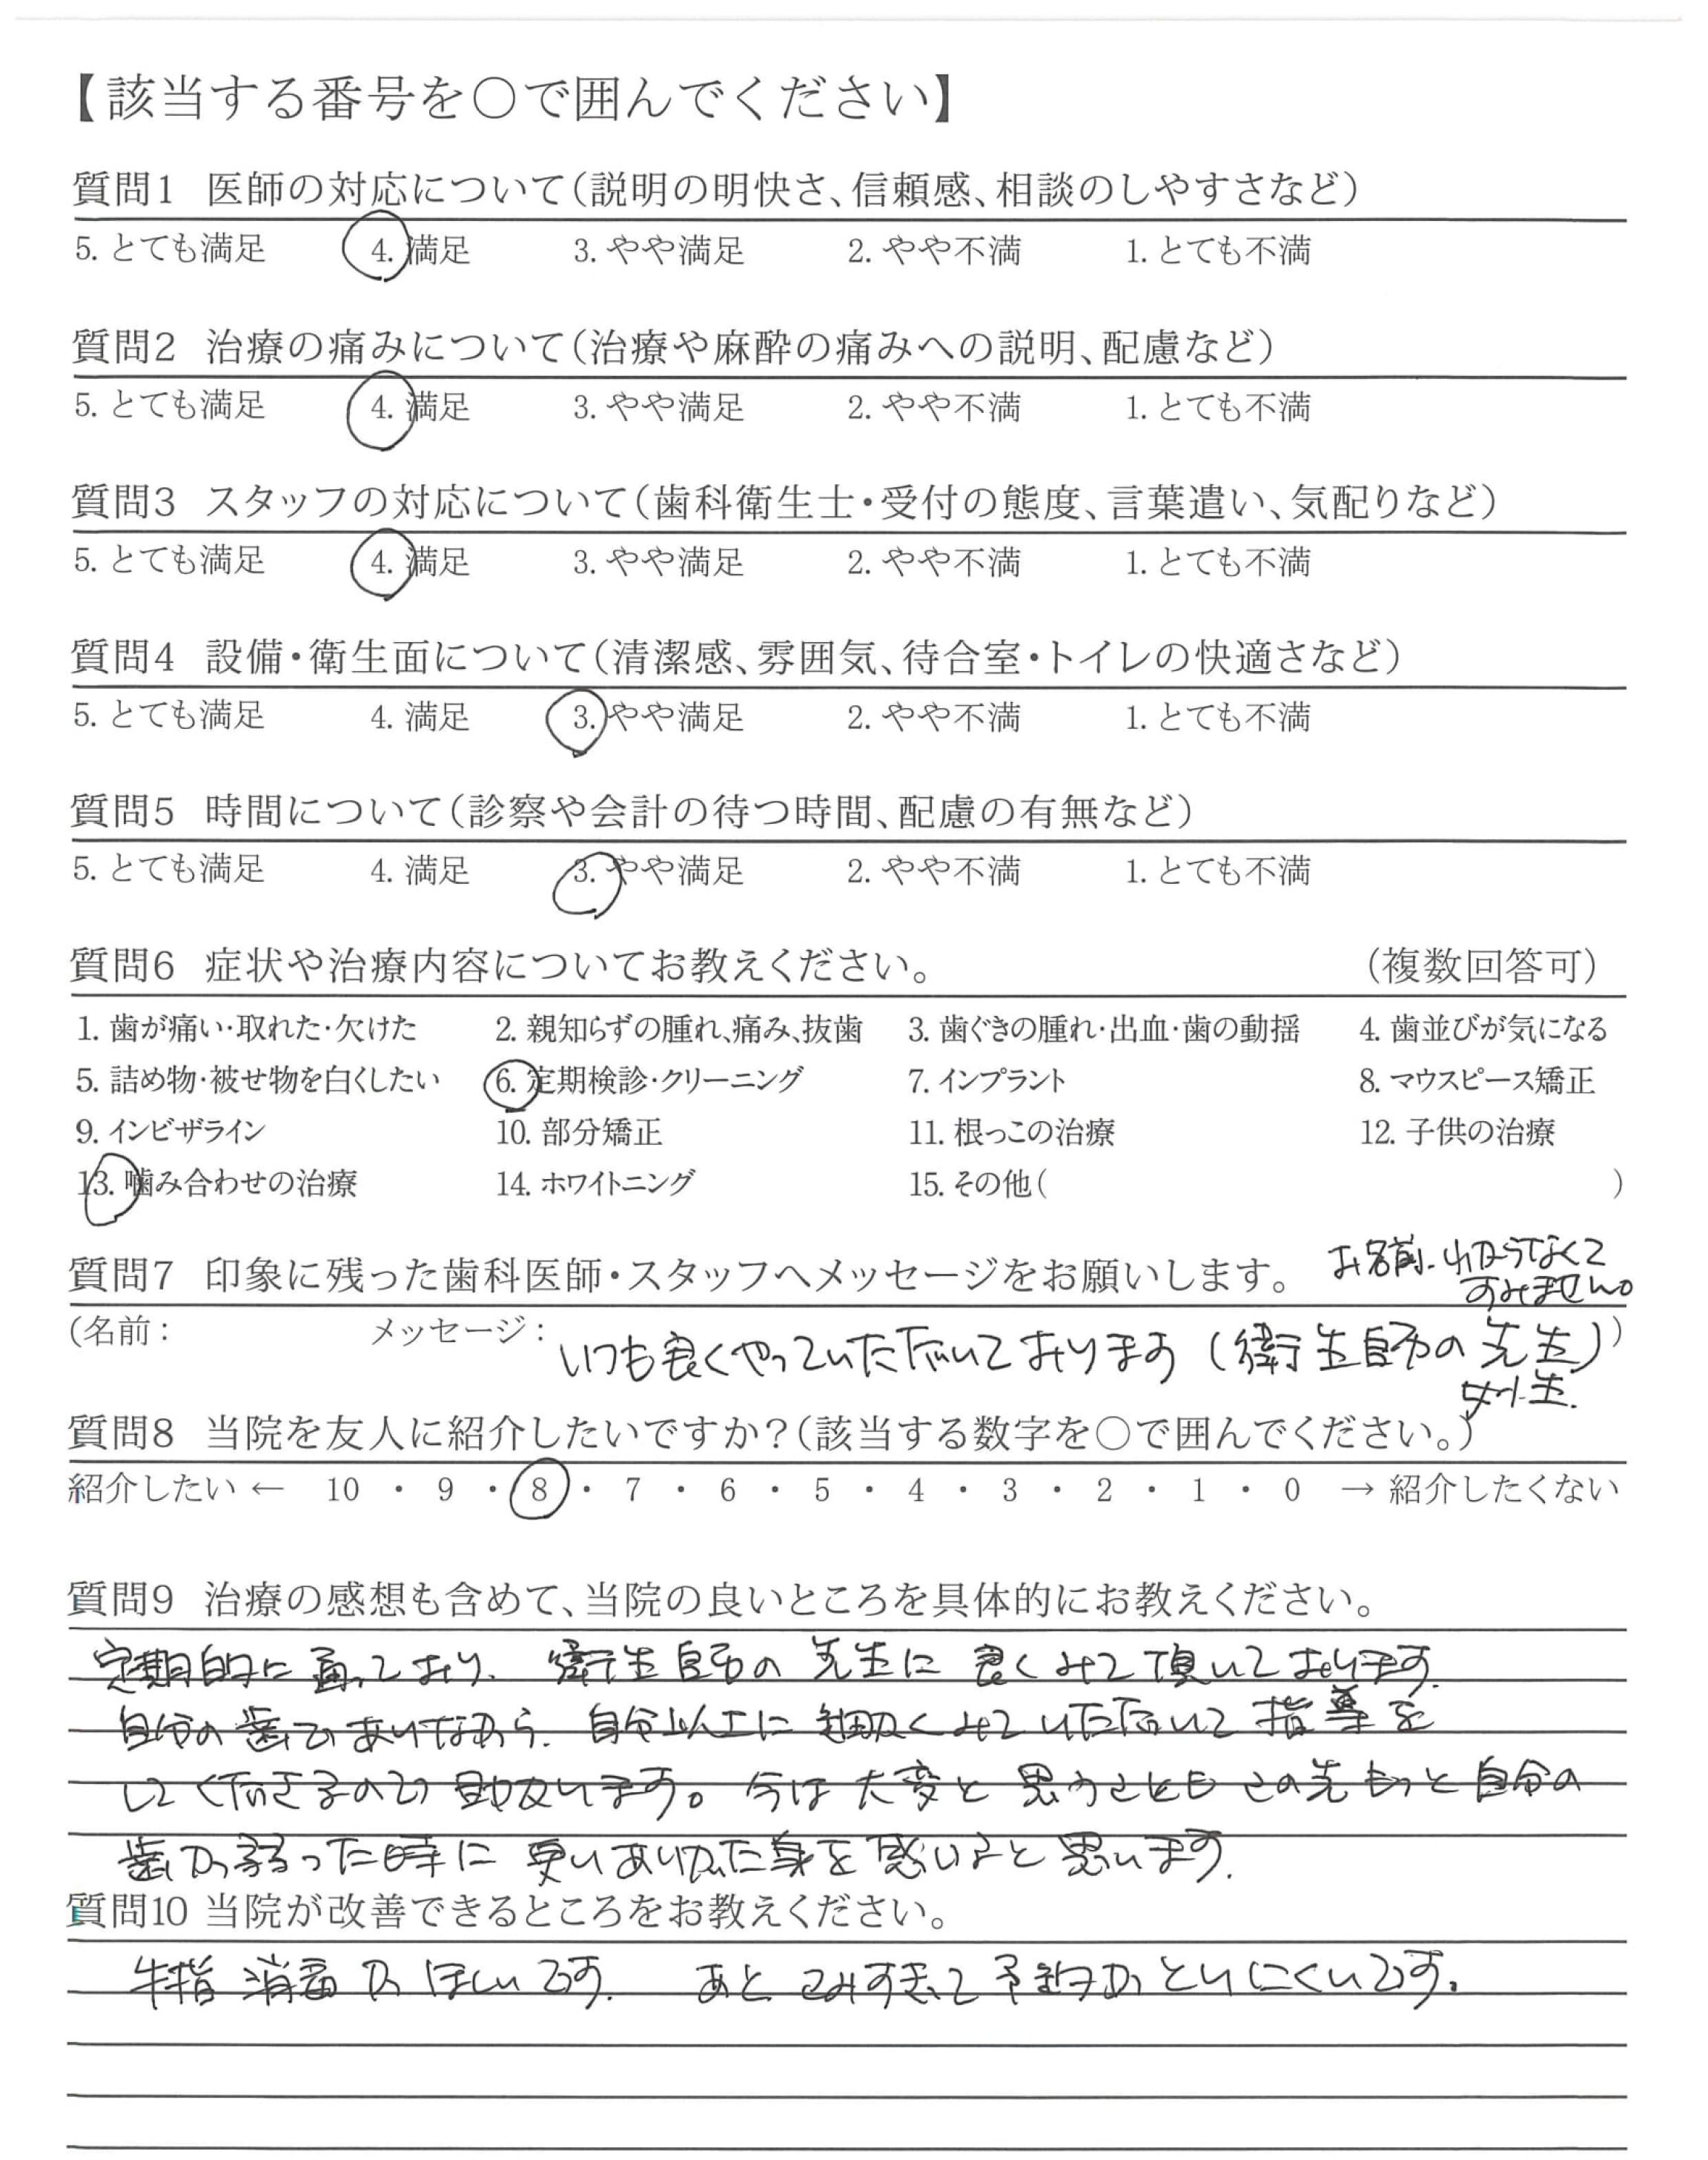 【該当する番号を〇で囲んでください】
質問1 医師の対応について（説明の明快さ、信頼感、相談のしやすさなど）
5. とても満足 4. 満足 3. やや満足 2. やや不満 1. とても不満
質問2 治療の痛みについて（治療や麻酔の痛みへの説明、配慮など）
5. とても満足 4. 満足 3. やや満足 2. やや不満 1. とても不満
質問3 スタッフの対応について（歯科衛生士・受付の態度、言葉遣い、気配りなど）
5. とても満足 4. 満足 3. やや満足 2. やや不満 1. とても不満
質問4 設備・衛生面について（清潔感、雰囲気、待合室・トイレの快適さなど）
5. とても満足 4. 満足 3. やや満足 2. やや不満 1. とても不満
質問5 時間について（診察や会計の待つ時間、配慮の有無など）
5. とても満足 4. 満足 3. やや満足 2. やや不満 1. とても不満
質問6 症状や治療内容についてお教えください。 （複数回答可）
1. 歯が痛い・取れた・欠けた 2. 親知らずの腫れ、痛み、抜歯 3. 歯ぐきの腫れ・出血・歯の動揺 4. 歯並びが気になる
5. 詰め物・被せ物を白くしたい 6. 定期検診・クリーニング 7. インプラント 8. マウスピース矯正
9. インビザライン 10. 部分矯正 11. 根っこの治療 12. 子供の治療
13. 噛み合わせの治療 14. ホワイトニング 15. その他（ ）
質問7 印象に残った歯科医師・スタッフへメッセージをお願いします。 お名前、わからなくて
すみません。
（名前： メッセージ： いつも良くやっていただいております（衛生師の先生））
女性.
質問8 当院を友人に紹介したいですか？（該当する数字を〇で囲んでください。）
紹介したい ← 10 ・ 9 ・ 8 ・ 7 ・ 6 ・ 5 ・ 4 ・ 3 ・ 2 ・ 1 ・ 0 → 紹介したくない
質問9 治療の感想も含めて、当院の良いところを具体的にお教えください。
定期的に通っており、衛生師の先生に良くみて頂いております.
自分の歯でありながら、自分以上に細かくみていただいて指導を
して下さるので助かります。今は大変と思うこともこの先もっと自分の
歯が弱った時に更にありがた身を感じると思います.
質問10 当院が改善できるところをお教えください。
手指消毒がほしいです. あとこみすぎて予約がとりにくいです。